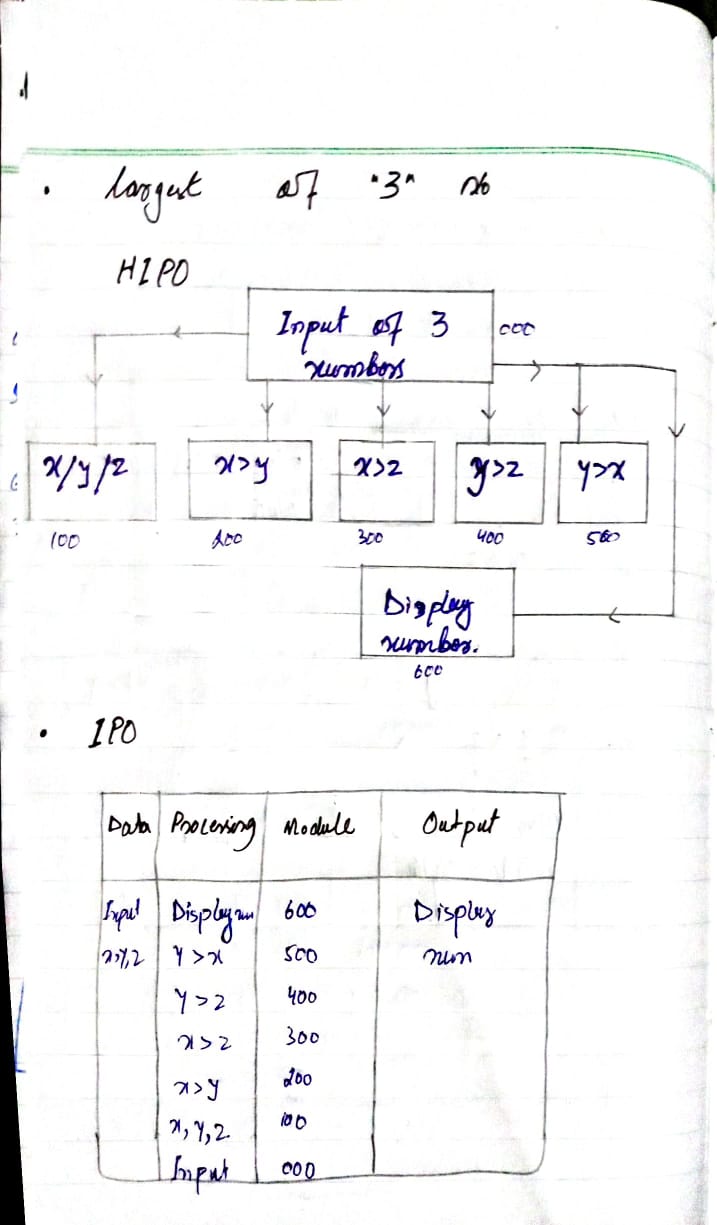 • largest of "3" no
HIPO
Input of 3
numbers
000
x/y/z
x>y
x>z
y>z
y>x
100
200
300
400
500
Display
number.
600
• IPO
Data Processing Module Output
Input Display num 600 Display
x,y,z y>x 500 num
y>z 400
x>z 300
x>y 200
x,y,z 100
Input 000